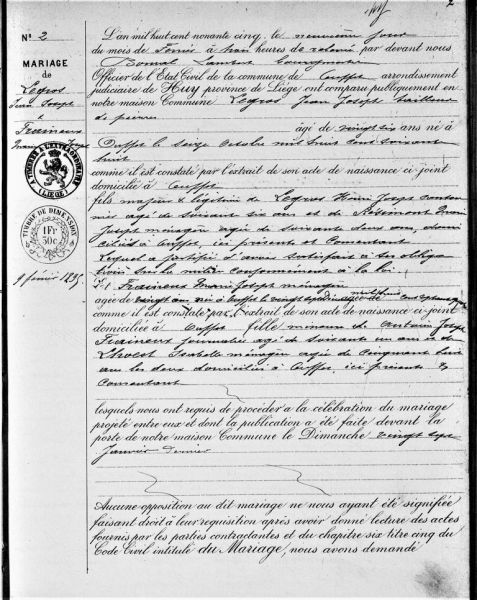 2
N° 2
MARIAGE
de
Legros
Jean Joseph
&
Fraineux
Marie
A TIMBRER A L'EXTRAORDINAIRE
(LIEGE)
TIMBRE DE DIMENSION
1Fr
30c
9 février 1895
L'an mil huit cent nonante cinq, le neuvième jour
du mois de Février à trois heures de relevée, par devant nous
Laurent bourgmestre
Officier de l'Etat Civil de la commune de Ouffet arrondissement
judiciaire de Huy province de Liège ont comparu publiquement en
notre maison Commune Legros Jean Joseph tailleur
de pierres
âgé de vingt six ans né à
Ouffet le seize Octobre mil huit cent soixante
huit
comme il est constaté par l'extrait de son acte de naissance ci-joint
domicilié à Ouffet
fils majeur & légitime de Legros Henri Joseph
agé de soixante six ans et de
Joseph ménagère agée de soixante deux ans, domi
ciliés à Ouffet, ici présents et Consentant
Lequel a justifié d'avoir satisfait à ses obliga
tions sur la milice conformément à la loi
Et Fraineux Marie Joseph ménagère
agée de vingt ans née à Ouffet le vingt sept mil huit cent
comme il est constaté par l'extrait de son acte de naissance ci-joint
domiciliée à Ouffet fille mineure de Antoine Joseph
Fraineux journalier agé de soixante un ans et de
Lhoest Isabelle ménagère agée de cinquante huit
ans les deux domiciliés à Ouffet, ici présents &
Consentant
lesquels nous ont requis de procéder à la célébration du mariage
projeté entre eux et dont la publication a été faite devant la
porte de notre maison Commune le Dimanche vingt sept
Janvier dernier
Aucune opposition au dit mariage ne nous ayant été signifiée
faisant droit à leur requisition après avoir donné lecture des actes
fournis par les parties contractantes et du chapitre six titre cinq du
Code Civil intitulé du Mariage, nous avons demandé